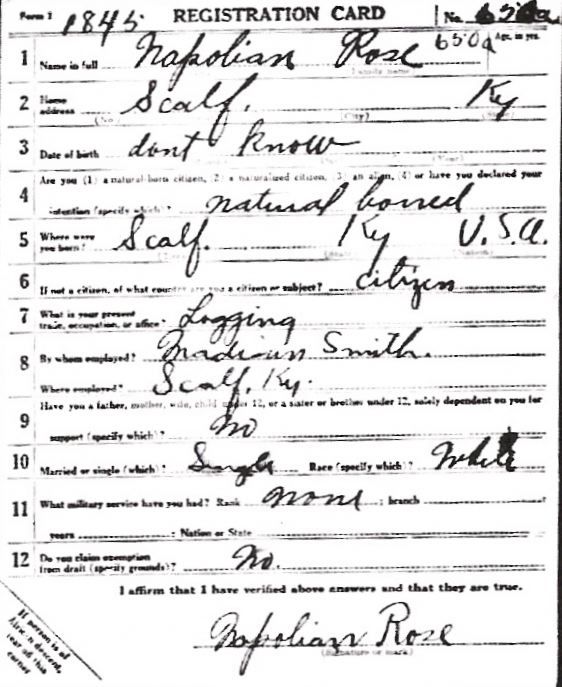 Form 1 1845 REGISTRATION CARD No. 650a
650a Age, in yrs.
1 Name in full Napolian Rose
(Family name)
2 Home address Scalf. Ky
(No.) (City)
3 Date of birth dont know
(Year)
4 Are you (1) a natural-born citizen, (2) a naturalized citizen, (3) an alien, (4) or have you declared your
intention (specify which)? natural borned
5 Where were you born? Scalf. Ky U.S.A.
6 If not a citizen, of what country are you a citizen or subject? citizen
7 What is your present trade, occupation, or office? Logging
8 By whom employed? Madison Smith.
Where employed? Scalf, Ky.
9 Have you a father, mother, wife, child under 12, or a sister or brother under 12, solely dependent on you for
support (specify which)? No
10 Married or single (which)? Single Race (specify which)? White
11 What military service have you had? Rank none ; branch
years ; Nation or State
12 Do you claim exemption from draft (specify grounds)? No.
I affirm that I have verified above answers and that they are true.
Napolian Rose
(Signature or mark)
If person is of
African descent,
tear off this
corner